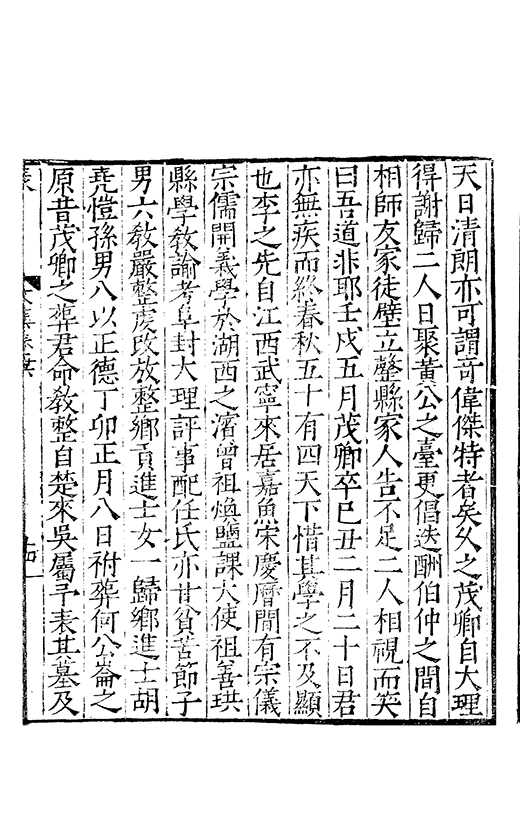 天日清朗亦可謂奇偉傑特者矣久之茂卿自大理
得謝歸二人日聚黃公之臺更倡迭酬伯仲之間自
相師友家徒壁立罄縣家人告不足二人相視而笑
曰吾道非耶壬戌五月茂卿卒巳丑二月二十日君
亦無疾而終春秋五十有四天下惜其學之不及顯
也李之先自江西武寧來居嘉魚宋慶曆間有宗儀
宗儒開義學於湖西之濱曾祖煥鹽課大使祖善珙
縣學教諭考阜封大理評事配任氏亦甘貧苦節子
男六敎嚴整虔改放整鄉貢進士女一歸鄉進士胡
堯愷孫男八以正德丁卯正月八日祔葬何公崙之
原昔茂卿之葬君命敎整自楚來吳屬予表其墓及